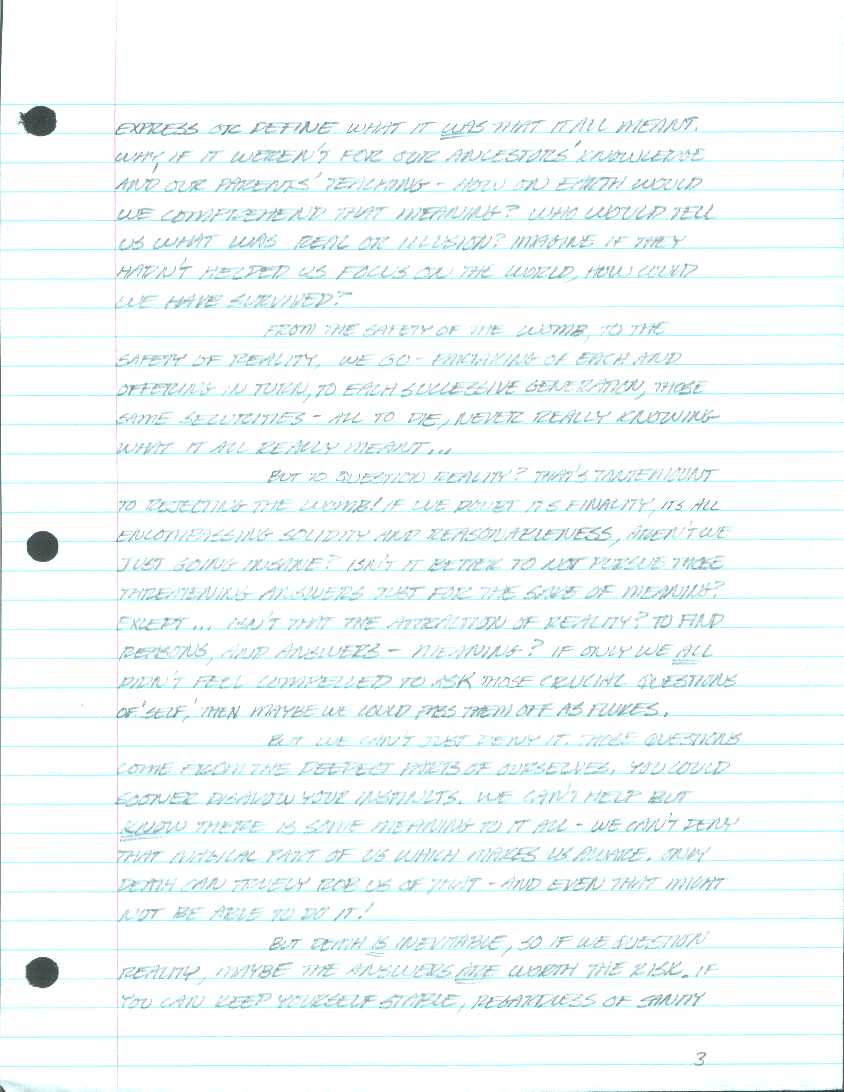 EXPRESS OR DEFINE WHAT IT WAS THAT IT ALL MEANT.
WHY, IF IT WEREN'T FOR OUR ANCESTORS' KNOWLEDGE
AND OUR PARENTS' TEACHING - HOW ON EARTH WOULD
WE COMPREHEND THAT MEANING? WHO WOULD TELL
US WHAT WAS REAL OR ILLUSION? IMAGINE IF THEY
HADN'T HELPED US FOCUS ON THE WORLD, HOW COULD
WE HAVE SURVIVED?
FROM THE SAFETY OF THE WOMB, TO THE
SAFETY OF REALITY, WE GO - PARTAKING OF EACH AND
OFFERING IN TURN, TO EACH SUCCESSIVE GENERATION, THOSE
SAME SECURITIES - ALL TO DIE, NEVER REALLY KNOWING
WHAT IT ALL REALLY MEANT...
BUT TO QUESTION REALITY? THAT'S TANTEMOUNT
TO REJECTING THE WOMB! IF WE DOUBT ITS FINALITY, ITS ALL
ENCOMPASSING SOLIDITY AND REASONABLENESS, AREN'T WE
JUST GOING INSANE? ISN'T IT BETTER TO NOT PURSUE THOSE
THREATENING ANSWERS JUST FOR THE SAKE OF MEANING?
EXCEPT... ISN'T THAT THE ATTRACTION OF REALITY? TO FIND
REASONS, AND ANSWERS - MEANING? IF ONLY WE ALL
DIDN'T FEEL COMPELLED TO ASK THOSE CRUCIAL QUESTIONS
OF 'SELF,' THEN MAYBE WE COULD PASS THEM OFF AS FLUKES.
BUT WE CAN'T JUST DENY IT. THOSE QUESTIONS
COME FROM THE DEEPEST PARTS OF OURSELVES. YOU COULD
SOONER DISAVOW YOUR INSTINCTS. WE CAN'T HELP BUT
KNOW THERE IS SOME MEANING TO IT ALL - WE CAN'T DENY
THAT MAGICAL PART OF US WHICH MAKES US AWARE. ONLY
DEATH CAN TRUELY ROB US OF THAT - AND EVEN THAT MIGHT
NOT BE ABLE TO DO IT!
BUT DEATH IS INEVITABLE, SO IF WE QUESTION
REALITY, MAYBE THE ANSWERS ARE WORTH THE RISK. IF
YOU CAN KEEP YOURSELF STABLE, REGARDLESS OF SANITY
3